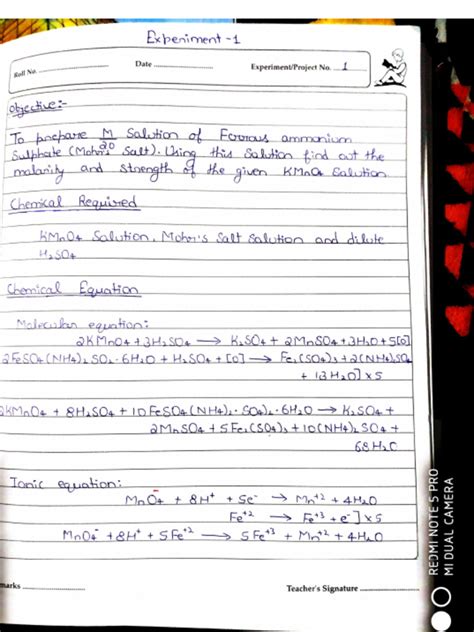 Experiment-1
Roll No. Date Experiment/Project No. 1
Objective:-
To prepare M/20 Solution of Ferrous ammonium
Sulphate (Mohr's Salt). Using this Solution find out the
molarity and strength of the given KMnO4 Solution
Chemical Required
KMnO4 Solution, Mohr's Salt Solution and dilute
H2SO4
Chemical Equation
Molecular equation:
2KMnO4 + 3H2SO4 → K2SO4 + 2MnSO4 + 3H2O + 5[O]
2FeSO4(NH4)2SO4·6H2O + H2SO4 + [O] → Fe2(SO4)3 + 2(NH4)2SO4
+ 13H2O] × 5
2KMnO4 + 8H2SO4 + 10FeSO4(NH4)2·SO4)2·6H2O → K2SO4 +
2MnSO4 + 5Fe2(SO4)3 + 10(NH4)2SO4 +
68H2O
Ionic equation:
MnO4⁻ + 8H⁺ + 5e⁻ → Mn⁺² + 4H2O
Fe⁺² → Fe⁺³ + e⁻] × 5
MnO4⁻ + 8H⁺ + 5Fe⁺² → 5Fe⁺³ + Mn⁺² + 4H2O
marks Teacher's Signature
REDMI NOTE 5 PRO
MI DUAL CAMERA